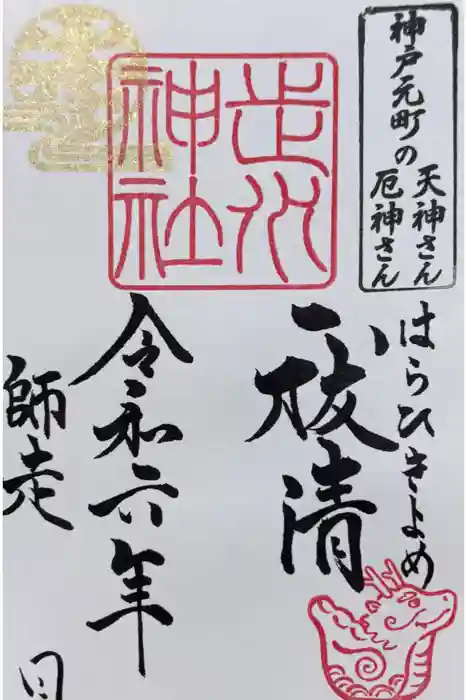 神戸元町の
天神さん
厄神さん
はらひきよめ
走水
神社
祓清
令和六年
師走
日